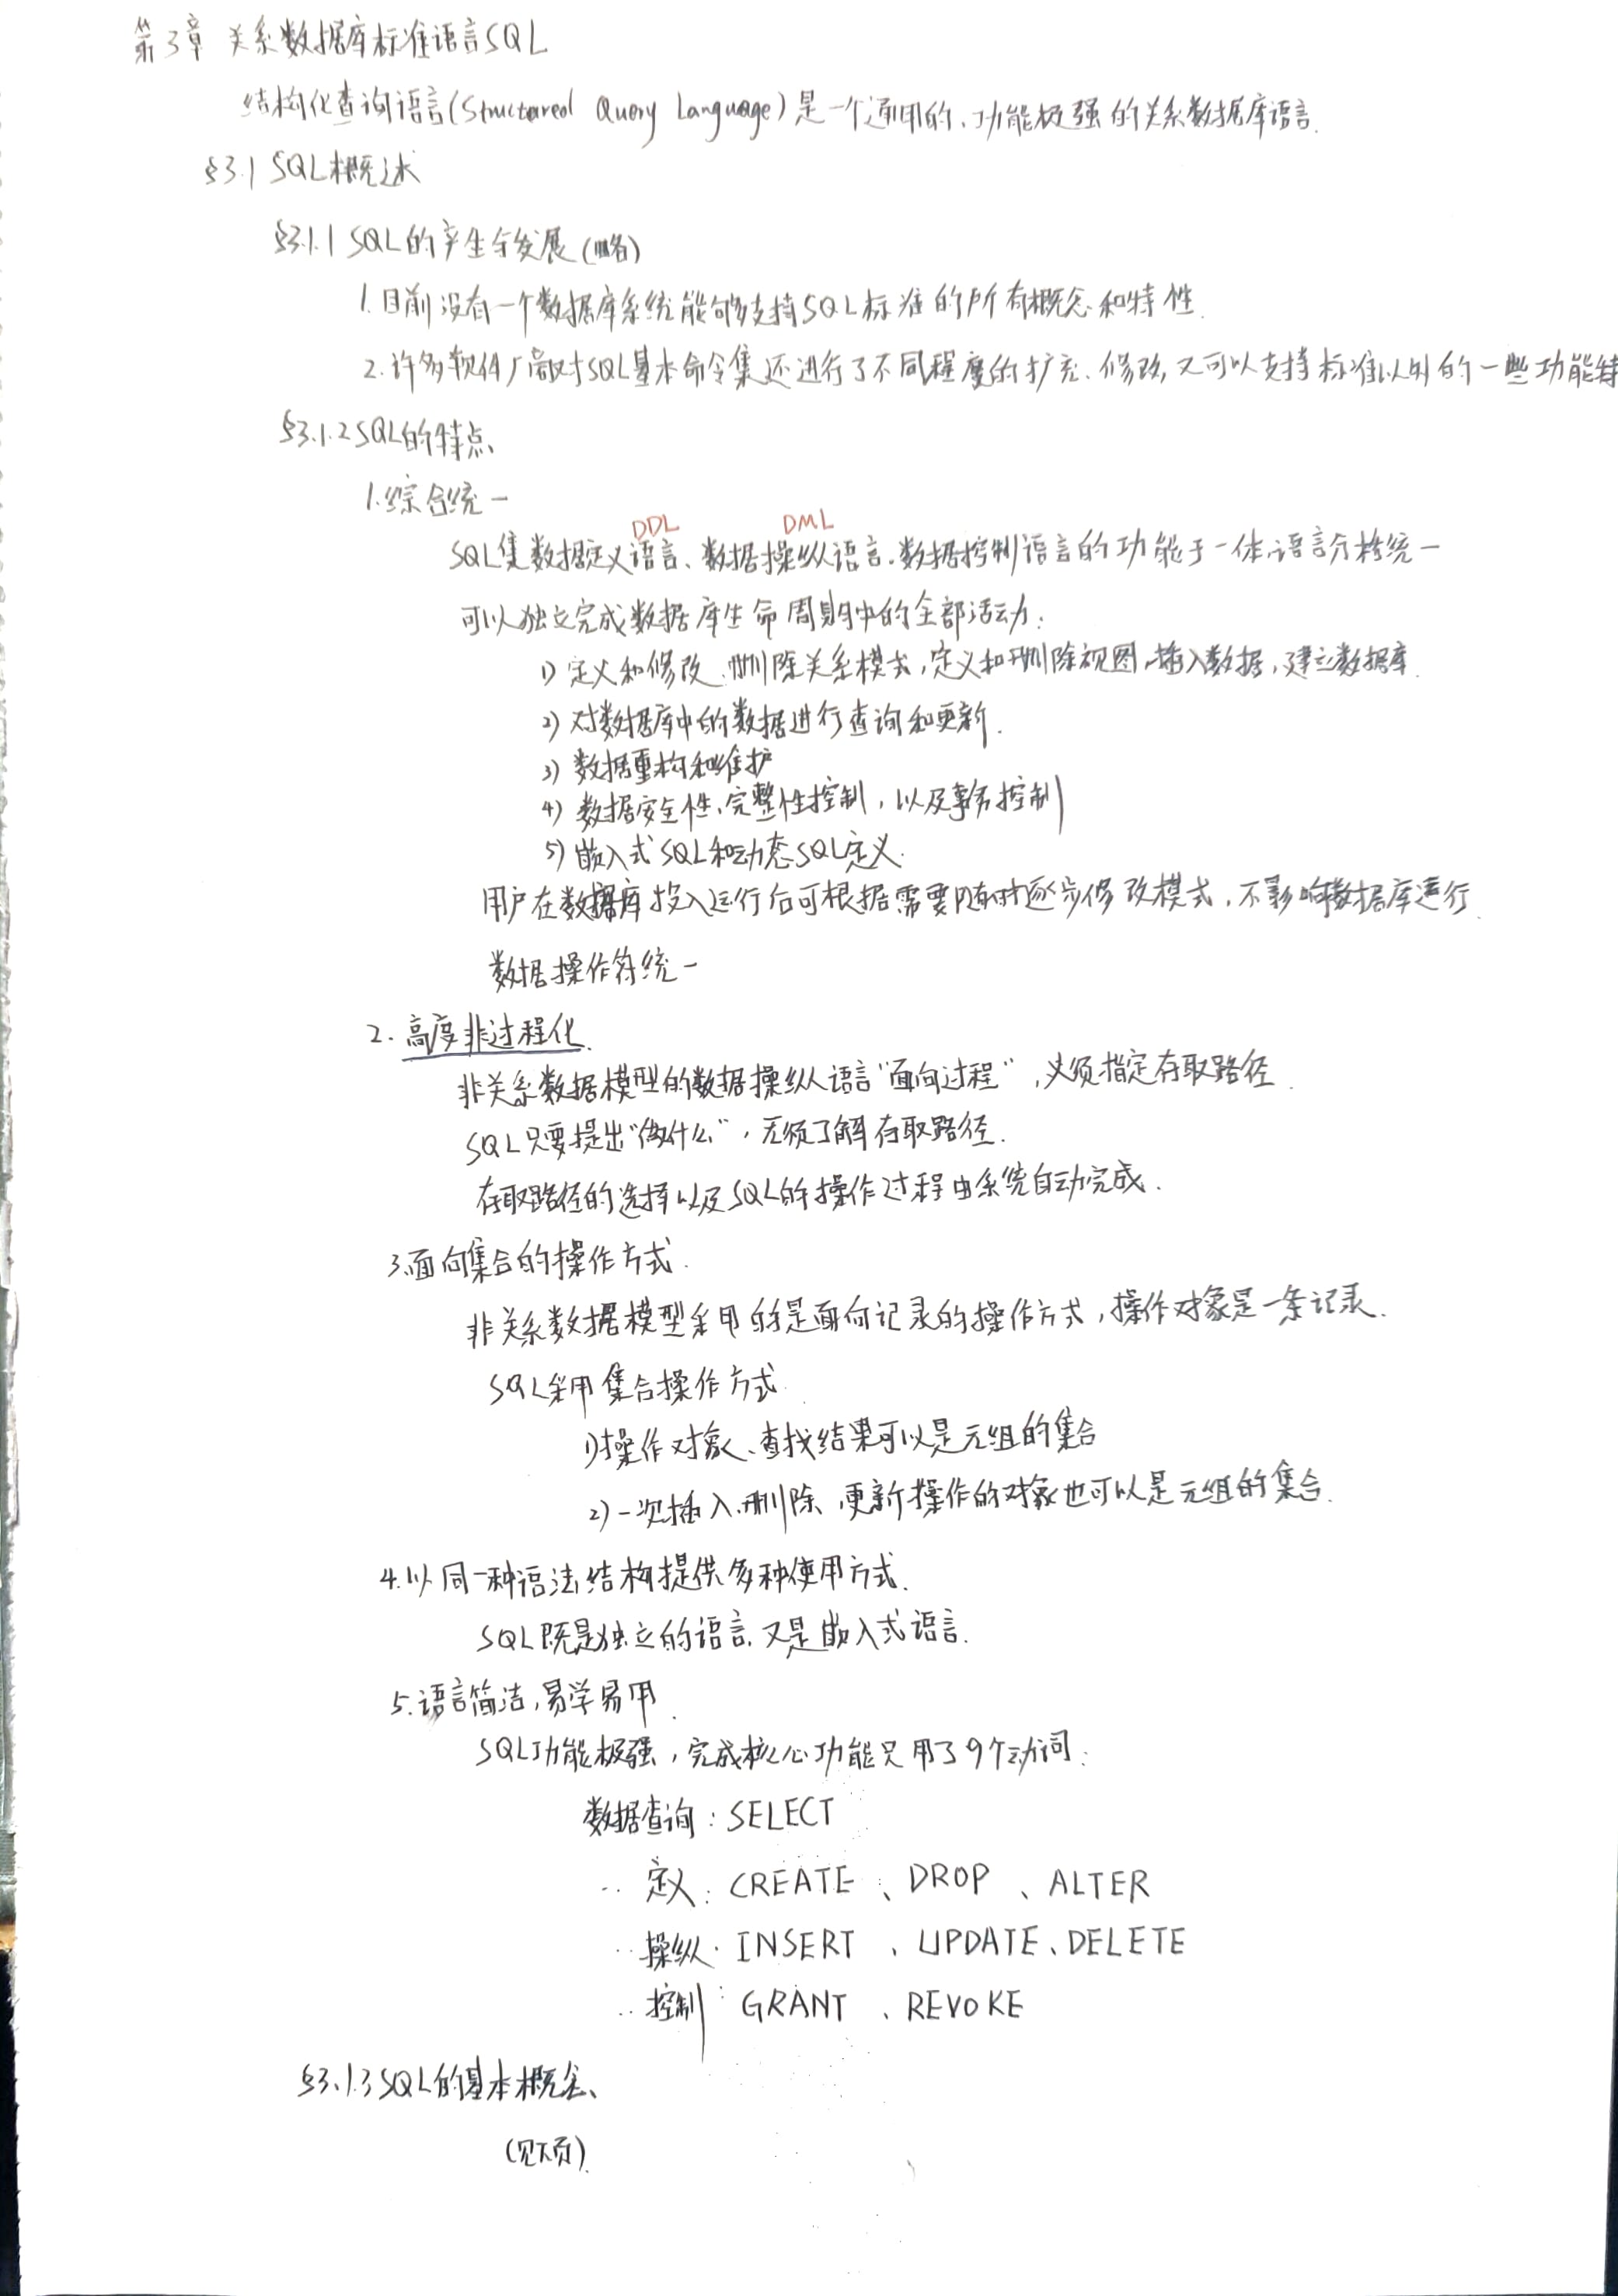 第3章 关系数据库标准语言SQL
结构化查询语言(Structured Query Language)是一个通用的、功能极强的关系数据库语言.
§3.1 SQL概述
§3.1.1 SQL的产生与发展(略)
1.目前没有一个数据库系统能够支持SQL标准的所有概念和特性.
2.许多软件厂商对SQL基本命令集还进行了不同程度的扩充、修改,又可以支持标准以外的一些功能特
§3.1.2 SQL的特点
1.综合统一
DDL DML
SQL集数据定义语言、数据操纵语言、数据控制语言的功能于一体,语言风格统一
可以独立完成数据库生命周期中的全部活动:
1) 定义和修改、删除关系模式,定义和删除视图,插入数据,建立数据库.
2) 对数据库中的数据进行查询和更新.
3) 数据重构和维护
4) 数据安全性、完整性控制,以及事务控制
5) 嵌入式SQL和动态SQL定义.
用户在数据库投入运行后可根据需要随时逐步修改模式,不影响数据库运行.
数据操作符统一
2.高度非过程化.
非关系数据模型的数据操纵语言"面向过程",必须指定存取路径.
SQL只要提出"做什么",无须了解存取路径.
存取路径的选择以及SQL的操作过程由系统自动完成.
3.面向集合的操作方式.
非关系数据模型采用的是面向记录的操作方式,操作对象是一条记录.
SQL采用集合操作方式.
1)操作对象、查找结果可以是元组的集合
2)一次插入、删除、更新操作的对象也可以是元组的集合.
4.以同一种语法结构提供多种使用方式.
SQL既是独立的语言,又是嵌入式语言.
5.语言简洁,易学易用.
SQL功能极强,完成核心功能只用了9个动词:
数据查询:SELECT
·· 定义:CREATE、DROP、ALTER
·· 操纵:INSERT、UPDATE、DELETE
·· 控制:GRANT、REVOKE
§3.1.3 SQL的基本概念
(见下页).